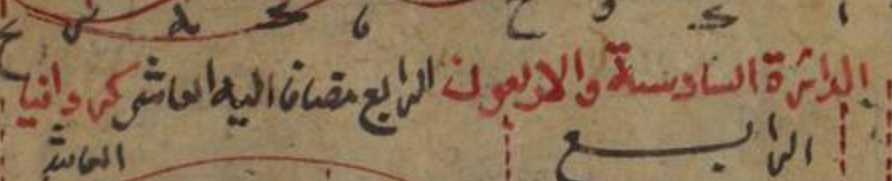 ا ح و ح
الدائرة السادسة والاربعون الرابع مضافا اليه العاشر كردانيا
الرابع العاشر